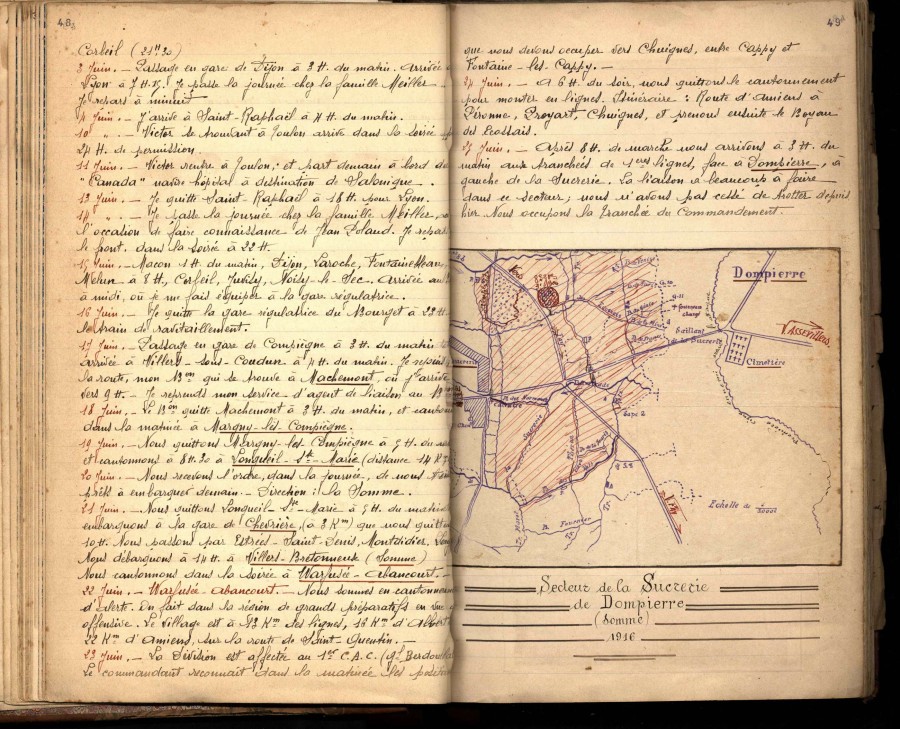 48
Corbeil (21H30)
3 Juin. – Passage en gare de Dijon à 3 H. du matin. Arrivée
Lyon à 7 H.15. Je passe la journée chez la famille Meiller –
Je repars à minuit
4 Juin. – J'arrive à Saint-Raphaël à 4 H. du matin.
10 " – Victor se trouvant à Toulon arrive dans la soirée
24 H. de permission.
11 Juin. – Victor rentre à Toulon; et part demain à bord du
"Canada" navire hôpital à destination de Salonique.
13 Juin. – Je quitte Saint Raphaël à 18 H. pour Lyon.
14 " – Je passe la journée chez la famille Meiller,
l'occasion de faire connaissance de Jean Poland. Je repars
le front dans la soirée à 22 H.
15 Juin. – Macon 1 H. du matin, Dijon, Laroche, Fontainebleau,
Melun à 8 H, Corbeil, Juvisy, Noisy-le-Sec. Arrivée au
à midi, où je me fais équiper à la gare régulatrice.
16 Juin. – Je quitte la gare régulatrice du Bourget à 23 H.
le train de ravitaillement.
17 Juin. – Passage en gare de Compiègne à 3 H. du matin
arrivée à Villers-sous-Coudun à 4 H. du matin. Je rejoins
la route, mon Bon qui se trouve à Machemont, où j'arrive
vers 9 H. – Je reprends mon service d'agent de liaison au
18 Juin. – Le Bon quitte Machemont à 3 H. du matin, et cantonne
dans la matinée à Margny-lès-Compiègne.
19 Juin. – Nous quittons Margny-les-Compiègne à 5 H. du
et cantonnons à 8 H.30 à Longueil-Ste-Marie (distance 14 Km
20 Juin. – Nous recevons l'ordre, dans la journée, de nous tenir
prêts à embarquer demain. – Direction: la Somme.
21 Juin. – Nous quittons Longueil-Ste-Marie à 5 H. du matin
embarquons à la gare de Chevrière, (à 3 Km) que nous quittons
10 H. Nous passons par Estrées-Saint-Denis, Montdidier,
Nous débarquons à 14 H. à Villers-Bretonneux (Somme)
Nous cantonnons dans la soirée à Warfusée-Abancourt. –
22 Juin. – Warfusée-Abancourt. – Nous sommes en cantonnement
d'alerte. On fait dans la région de grands préparatifs en vue
offensive. Le village est à 13 Km des lignes, 16 Km d'Albert
22 Km d'Amiens, sur la route de Saint-Quentin. –
23 Juin. – La Division est affectée au 1er C.A.C. (gl Berdoulat
Le commandant reconnait dans la matinée les positions
49
que nous devons occuper vers Chuignes, entre Cappy et
Fontaine-les-Cappy. –
24 Juin. – A 6 H. du soir, nous quittons le cantonnement
pour monter en lignes. Itinéraire: Route d'Amiens à
Péronne, Proyart, Chuignes, et prenons ensuite le Boyau
des Ecossais.
25 Juin. – Après 8 H. de marche nous arrivons à 3 H. du
matin aux tranchées de 1eres lignes, face à Dompierre, à
gauche de la Sucrerie. La liaison a beaucoup à faire
dans ce secteur; nous n'avons pas cessé de trotter depuis
hier. Nous occupons la Tranchée du Commandement.
Dompierre
Assevillers
Cimetière
Saillant
de la Sucrerie
Sape 2
B. Fournier
Echelle de
Secteur de la Sucrerie
de Dompierre
(Somme)
1916